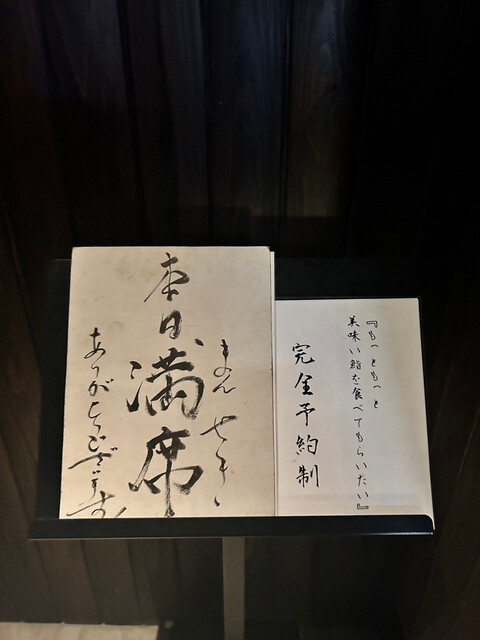 本日満席
まんせき
ありがとうございます
『もっともっと
美味い鮨を食べてもらいたい』
完全予約制